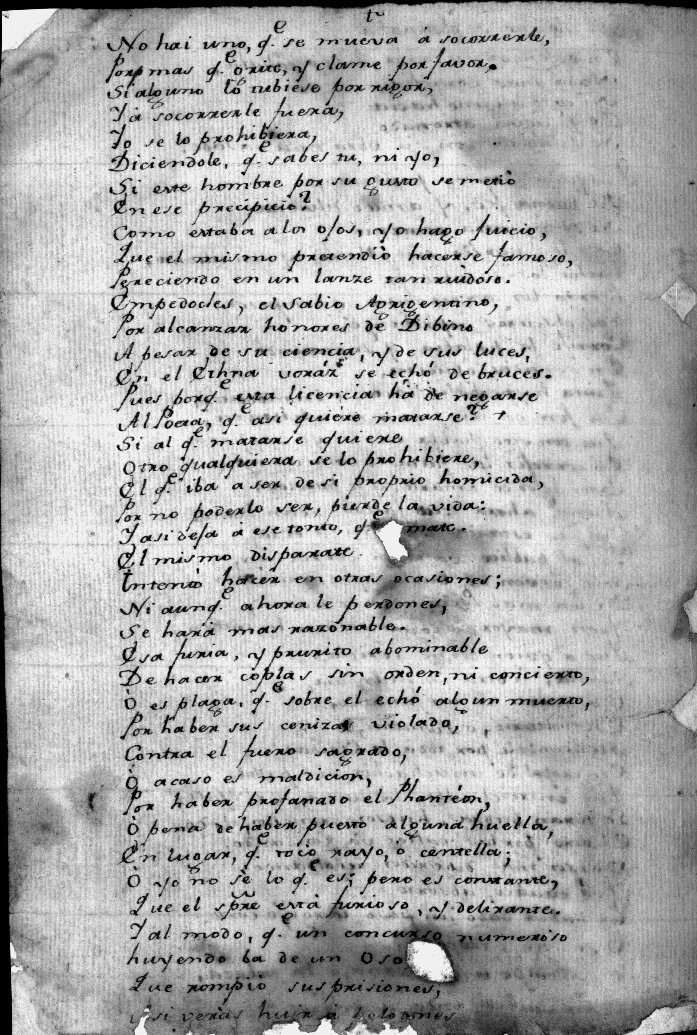 No hai uno, q.e se mueva á socorrerle,
Por mas q.e grite, y clame por favor,
Si alguno lo tubiese por rigor,
Y á socorrerle fuera,
Yo se lo prohibiera,
Diciendole, q.e sabes tu, ni yo,
Si este hombre por su gusto se metió
En ese precipicio?
Como estaba a los ojos, yo hago juicio,
Que el mismo pretendió hacerse famoso,
Pereciendo en un lanze tan ruidoso.
Empedocles, el sabio Agrigentino,
Por alcanzar honores de Dibino
A pesar de su ciencia, y de sus luces,
En el Ethna voráz se echó de bruces.
Pues porq.e esta licencia há de negarse
Al Poeta, q.e asi quiere matarse?
Si al q.e matarse quiere
Otro qualquiera se lo prohibiere,
El q.e iba a ser de si proprio homicida,
Por no poderlo ser, pierde la vida:
Y asi deja á ese tonto, q.e mate.
El mismo disparate
Intentó hacer en otras ocasiones;
Ni aunq.e ahora le perdones,
Se hará mas razonable.
Esa furia, y prurito abominable
De hacer coplas sin orden, ni concierto,
Ó es plaga, q.e sobre el echó algun muerto,
Por haber sus cenizas violado,
Contra el fuero sagrado,
Ó acaso es maldicion,
Por haber profanado el Phantéon,
Ó pena de haber puesto alguna huella,
En lugar, q.e tocó rayo, ó centella;
Ó yo no sé lo q.e es; pero es constante,
Que el spre está furioso, y delirante.
Y al modo, q.e un concurso numeroso
huyendo ba de un Oso
Que rompió sus prisiones,
Asi verás huir a